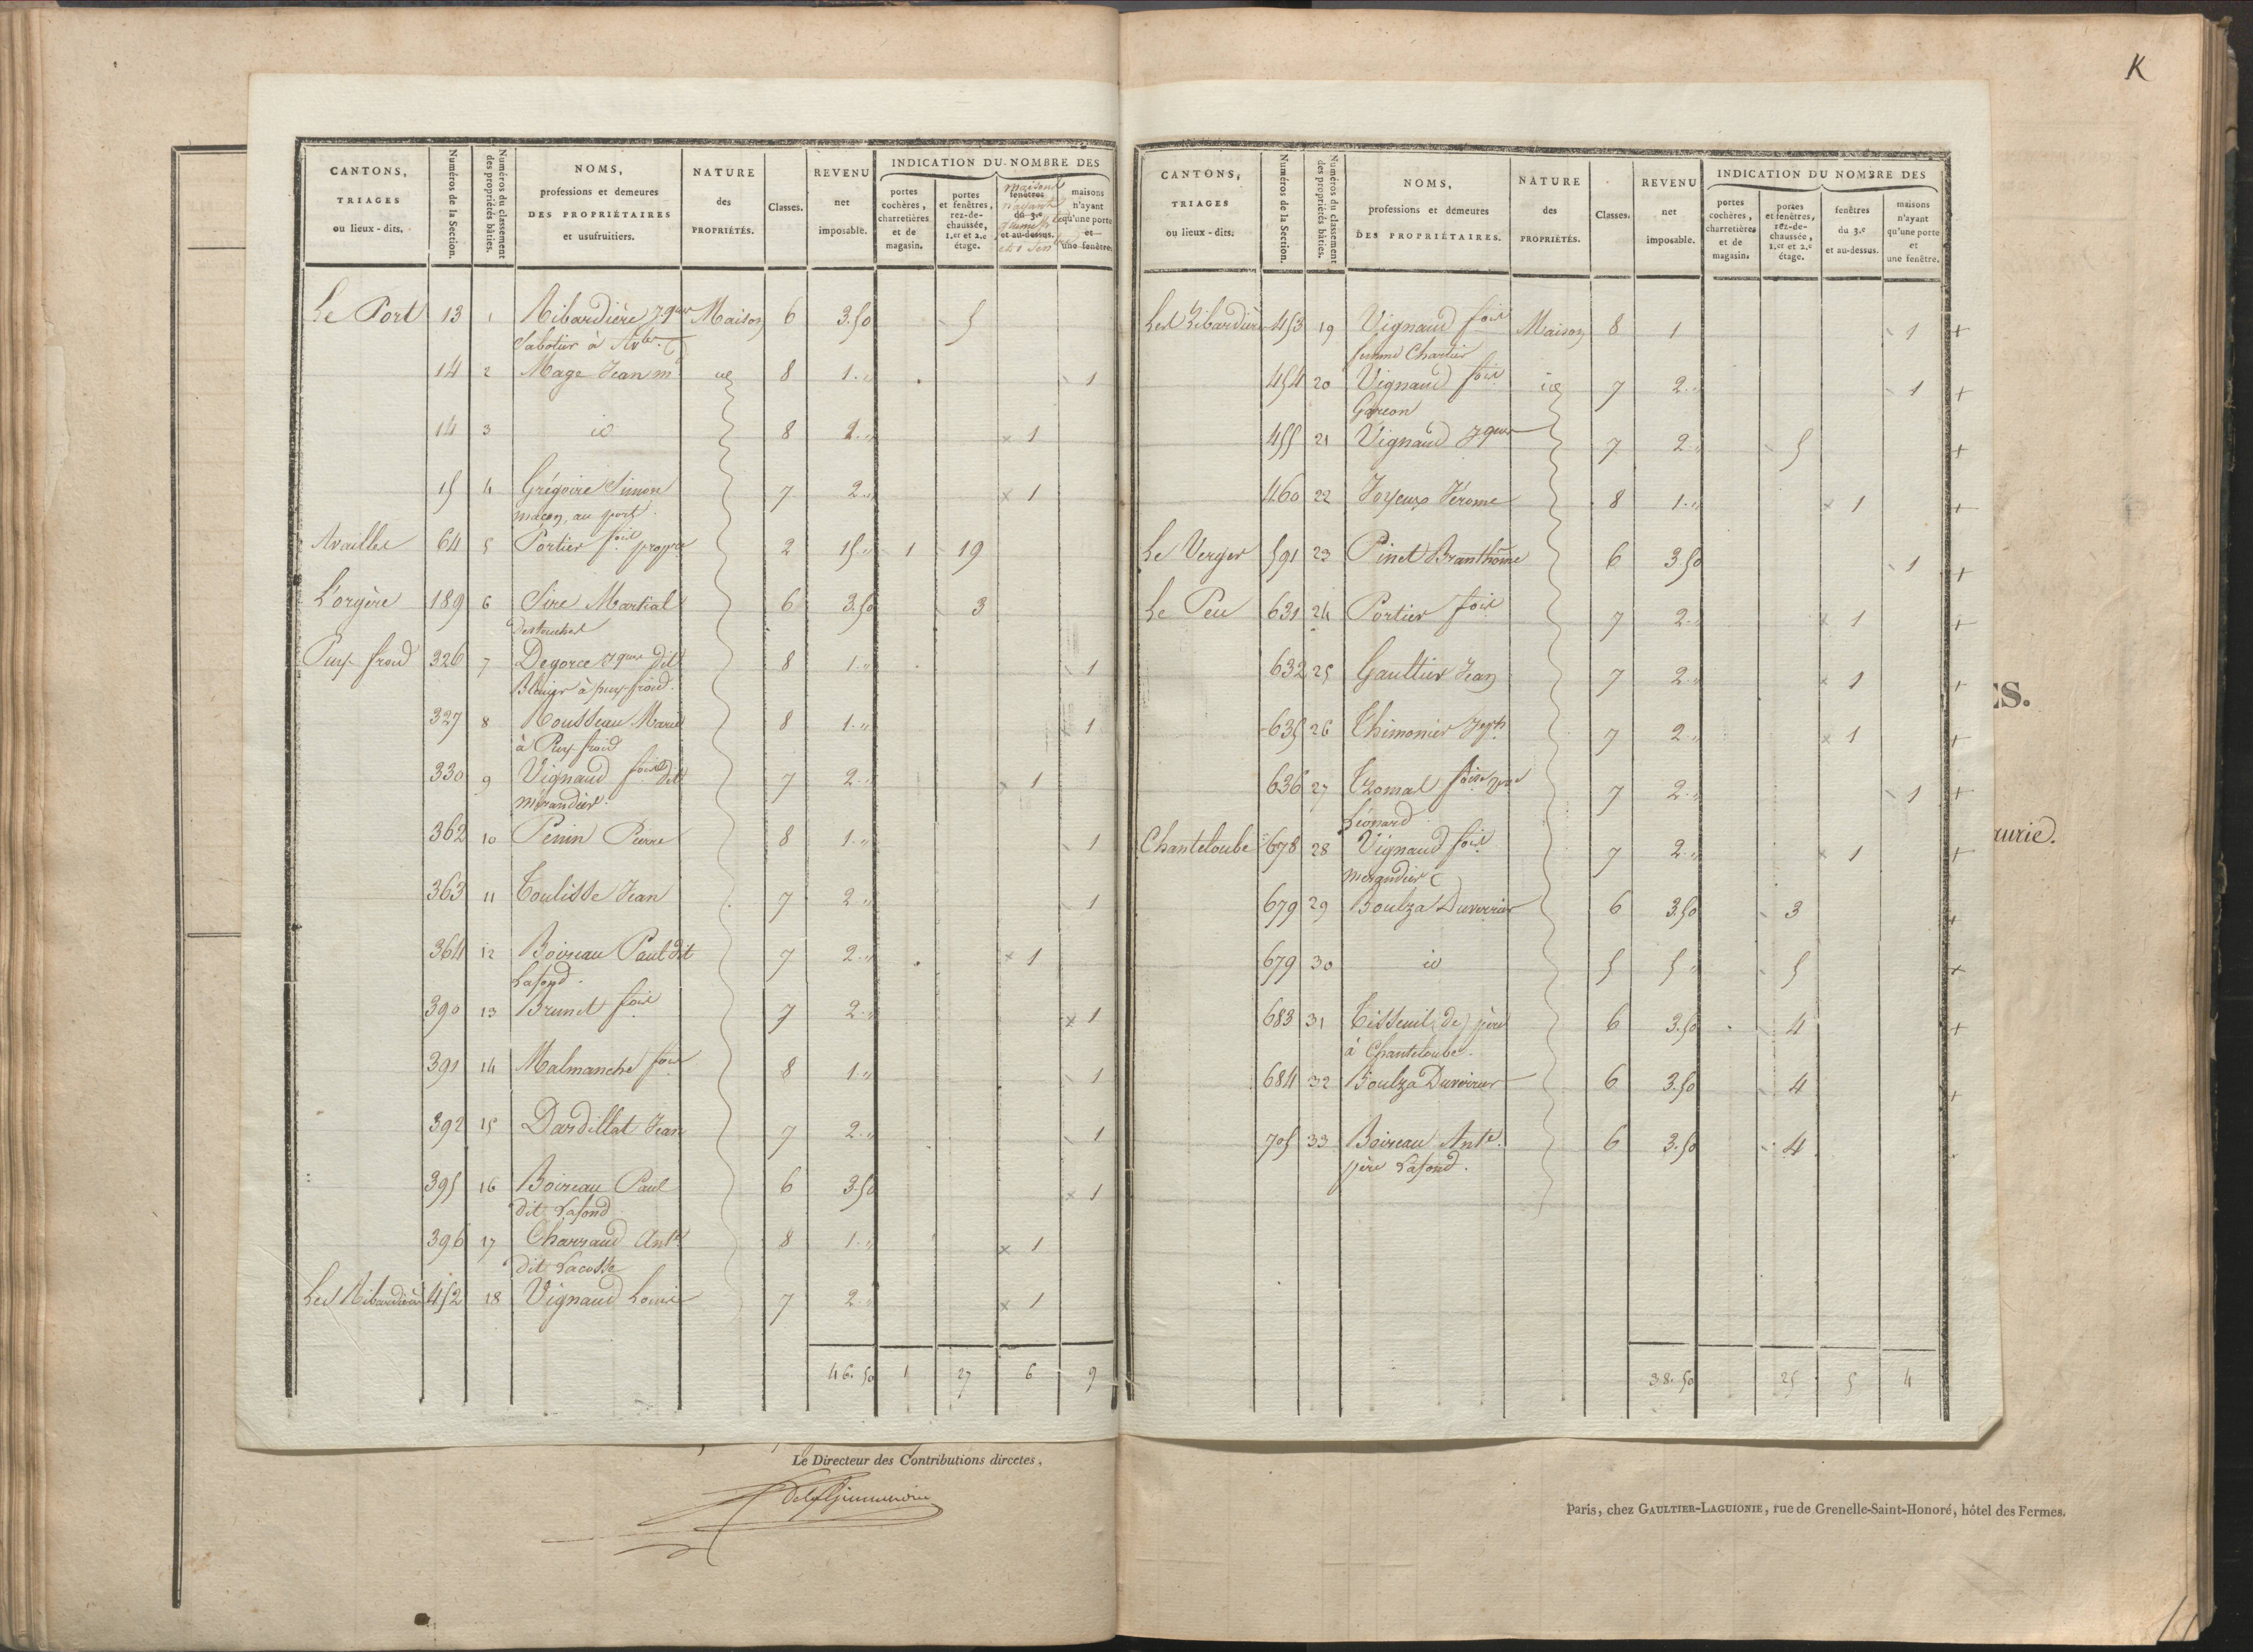 K
CANTONS,
TRIAGES
ou lieux-dits.
Numéros de la Section.
Numéros du classement
des propriétés bâties.
NOMS,
professions et demeures
DES PROPRIÉTAIRES
et usufruitiers.
NATURE
des
PROPRIÉTÉS.
Classes.
REVENU
net
imposable.
INDICATION DU NOMBRE DES
portes
cochères,
charretières
et de
magasin.
portes
et fenêtres,
rez-de-
chaussée,
1.er et 2.e
étage.
fenêtres
du 3.e
et au-dessus.
maisons
n'ayant
qu'une porte
et
une fenêtre.
Le Port 13 1 Ribardière Maison 6 3.50 5
Sabotier à
14 2 Mage Jean id 8 1.. 1
14 3 id 8 1.. 1
15 4 Grégoire Simon 7 2.. 1
maçon, au port
Availles 64 5 Portier fois 2 15.. 1 19
L'orgère 189 6 Sire Martial 6 3.50 3
Puy-froid 326 7 Degorce dit 8 1.. 1
à puy-froid.
327 8 Rousseau Marie 8 1.. 1
à Puy-froid
330 9 Vignaud fois dit 7 2.. 1
362 10 Penin Pierre 8 1.. 1
363 11 Toulisse Jean 7 2.. 1
364 12 Boireau Paul dit 7 2.. 1
Lafond.
390 13 Brunet fois 7 2.. 1
391 14 Malmanche fois 8 1.. 1
392 15 Dardillat Jean 7 2.. 1
395 16 Boireau Paul 6 3.50 1
dit Lafond
396 17 Charraud Ant.e 8 1.. 1
dit Lacosse
Les Ribardières 452 18 Vignaud Louis 7 2.. 1
46.50 1 27 6 9
CANTONS,
TRIAGES
ou lieux-dits.
Numéros de la Section.
Numéros du classement
des propriétés bâties.
NOMS,
professions et demeures
DES PROPRIÉTAIRES.
NATURE
des
PROPRIÉTÉS.
Classes.
REVENU
net
imposable.
INDICATION DU NOMBRE DES
portes
cochères,
charretières
et de
magasin.
portes
et fenêtres,
rez-de-
chaussée,
1.er et 2.e
étage.
fenêtres
du 3.e
et au-dessus.
maisons
n'ayant
qu'une porte
et
une fenêtre.
Les Ribardières 453 19 Vignaud fois Maison 8 1 1 +
femme Chartier
454 20 Vignaud fois id 7 2.. 1 +
Garcon
455 21 Vignaud 7 2.. 5 +
460 22 Joyeux Jérome 8 1.. 1 +
Le Verger 591 23 Pinet Branthôme 6 3.50 1 +
Le Peu 631 24 Portier fois 7 2.. 1 +
632 25 Gaultier Jean 7 2.. 1 +
635 26 Thimonier Jph 7 2.. 1 +
636 27 7 2.. 1 +
Léonard
Chanteloube 678 28 Vignaud fois 7 2.. 1 +
679 29 Boulza Duverrier 6 3.50 3 +
679 30 id 5 5.. 5 +
683 31 Tisseuil (de) père 6 3.50 4 +
à Chanteloube.
684 32 Boulza Duverrier 6 3.50 4 +
705 33 Boireau Ant.e 6 3.50 4
père Lafond.
38.50 25 5 4
ES.
Le Directeur des Contributions directes,
Paris, chez GAULTIER-LAGUIONIE, rue de Grenelle-Saint-Honoré, hôtel des Fermes.